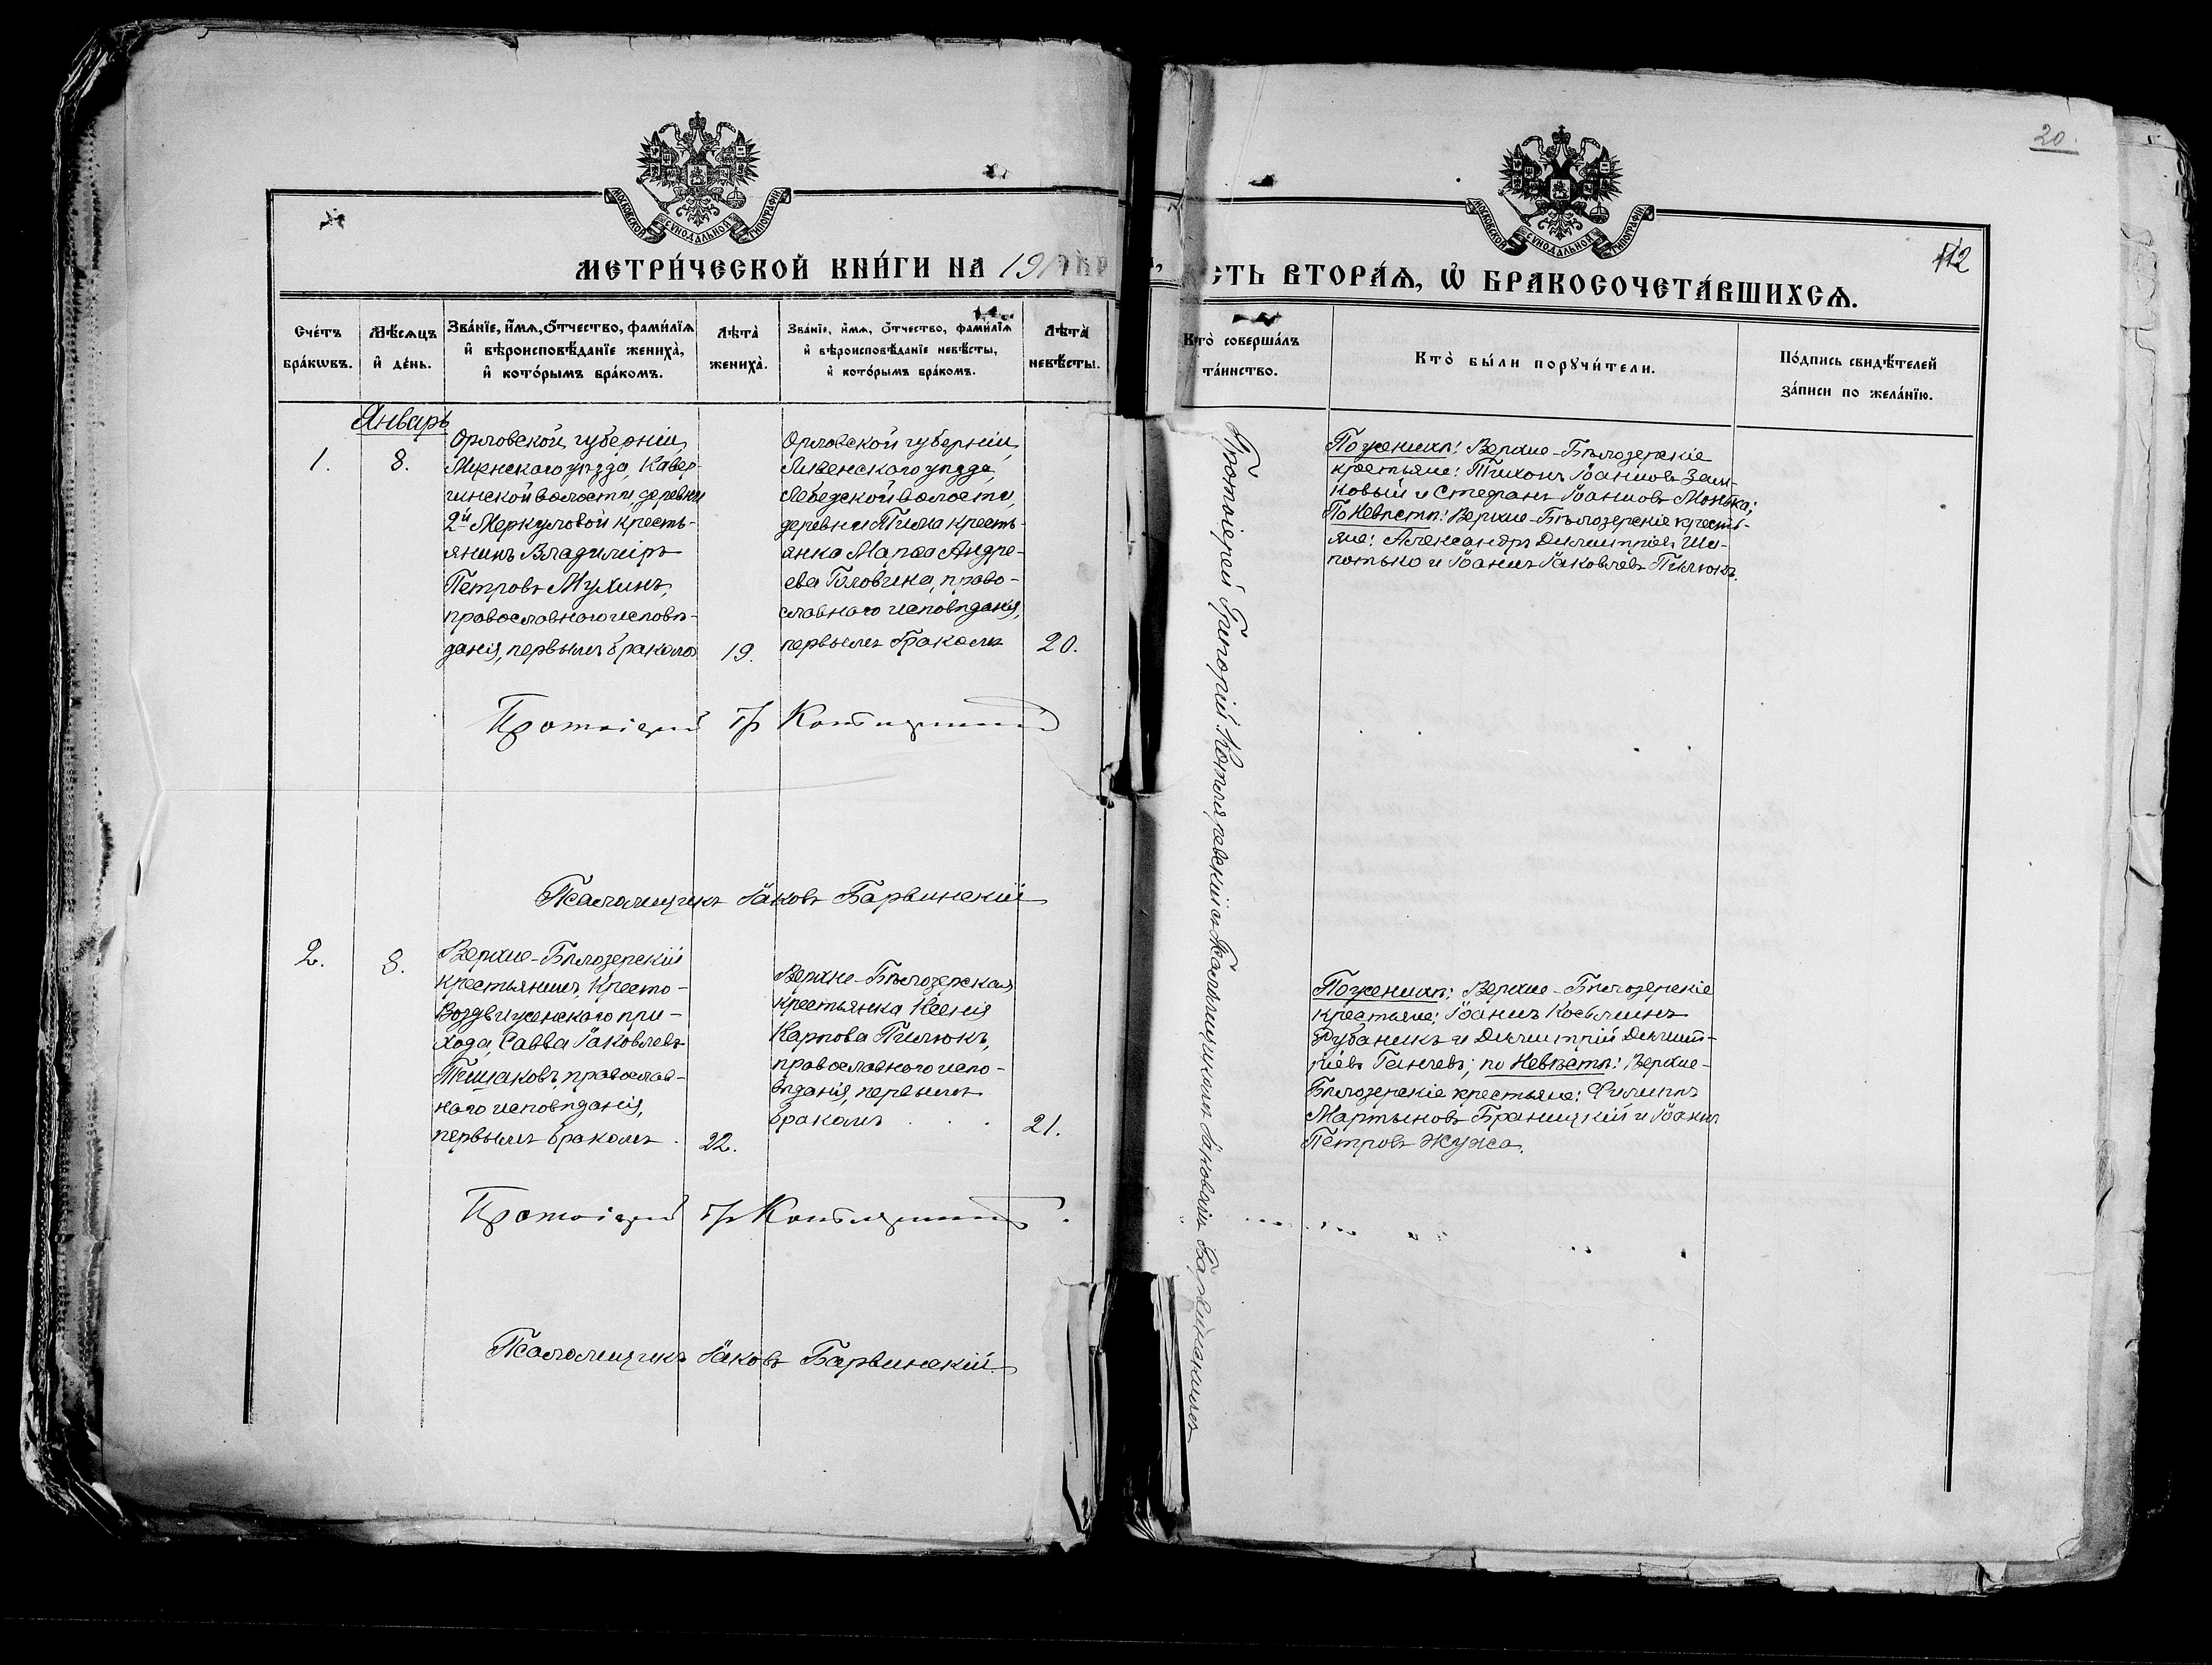 20.
МОСКОВСКОЙ СУНОДАЛЬНОЙ ТИПОГРАФІИ
МОСКОВСКОЙ СУНОДАЛЬНОЙ ТИПОГРАФІИ
112
МЕТРИ́ЧЕСКОЙ КНИ́ГИ НА 191
СТЬ ВТОРА́Ѧ, Ѽ БРАКОСОЧЕТА́ВШИХСѦ.
Сче́тъ бра́кѡвъ.
Мѣ́сѧцъ и҆ де́нь.
Зва́нїе, и҆́мѧ, ѻ҆́тчество, фами́лїѧ
и҆ вѣроисповѣ́данїе жениха̀,
и҆ кото́рымъ бра́комъ.
Лѣта̀ жениха̀.
Зва́нїе, и҆́мѧ, ѻ҆́тчество, фами́лїѧ
и҆ вѣроисповѣ́данїе невѣ́сты,
и҆ кото́рымъ бра́комъ.
Лѣта̀ невѣ́сты.
Кто̀ соверша́лъ
та́инство.
Кто̀ бы́ли порꙋчи́тели.
По́дпись свидѣ́телей
за́писи по жела́нїю.
Январь
1.
8.
Орловской губерніи,
Мценскаго уѣзда, Кавер-
гинской волости, деревни
2й Меркуловой кресть-
янинъ Владиміръ
Петровъ Мухинъ,
православнаго исповѣ-
данія, первымъ бракомъ
19.
Орловской губерніи,
Ливенскаго уѣзда,
Лебедской волости,
деревни Тима кресть-
янка Марѳа Андре-
ева Головина, право-
славнаго исповѣданія,
первымъ бракомъ
20.
Протоіерей Григорій Котляревскій съ Псаломщикомъ Іаковомъ Барвинскимъ
По женихѣ: Верхне-Бѣлозерскіе
крестьяне: Тихонъ Іоанновъ Зам-
ковый и Стефанъ Іоанновъ Монька;
По невѣстѣ: Верхне-Бѣлозерскіе кресть-
яне: Александръ Димитріевъ Ша-
потько и Іоаннъ Іаковлевъ Пилюкъ.
Протоіерей Гр Котляревскій
Псаломщикъ Іаковъ Барвинскій
2.
8.
Верхне-Бѣлозерскій
крестьянинъ, Кресто-
Воздвиженскаго при-
хода, Савва Іаковлевъ
Тищаковъ, православ-
наго исповѣданія,
первымъ бракомъ.
22.
Верхне-Бѣлозерская
крестьянка Ксенія
Карпова Пилюкъ,
православнаго испо-
вѣданія, первымъ
бракомъ . . .
21.
По женихѣ: Верхне-Бѣлозерскіе
крестьяне: Іоаннъ Косьминъ
Рубаникъ и Димитрій Димит-
ріевъ Ганчевъ; по невѣстѣ: Верхне-
Бѣлозерскіе крестьяне: Филиппъ
Мартыновъ Браницкій и Іоаннъ
Петровъ Жужа.
Протоіерей Гр Котляревскій.
Псаломщикъ Іаковъ Барвинскій.